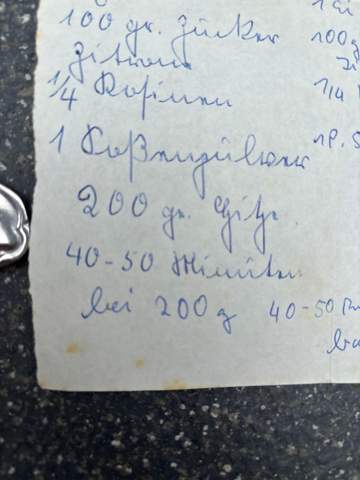 100 gr. Zucker
Zitrone
1/4 Rosinen
1 Soßenpulver
200 gr. Hitze
40-50 Minuten
bei 200 g
100g
Zi
1/4
1 P. S
40-50